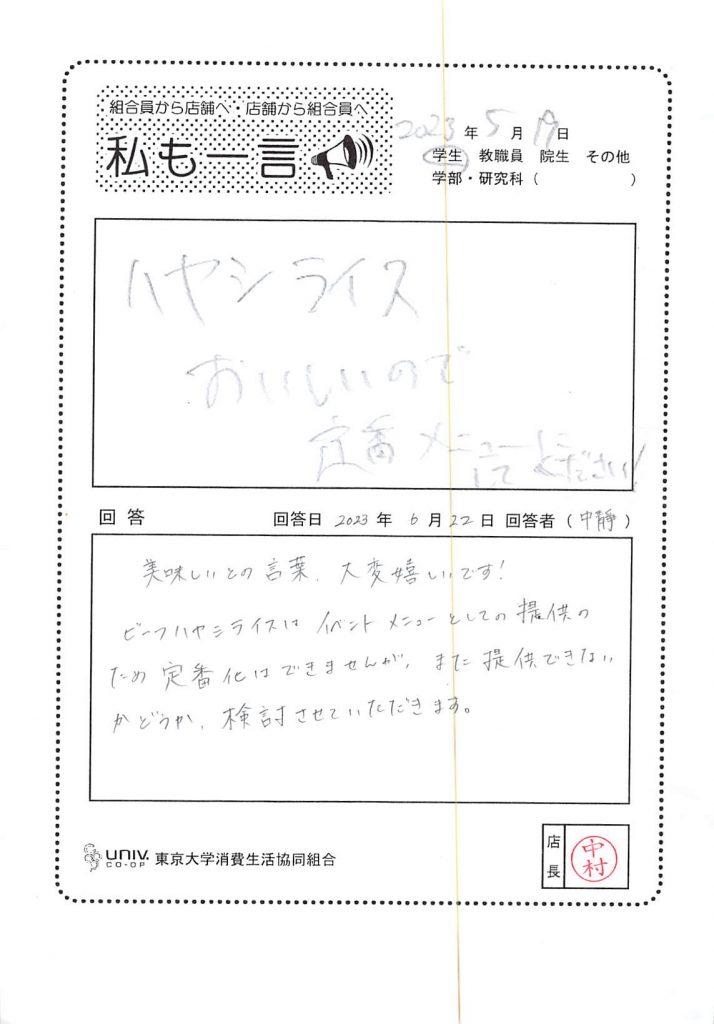 組合員から店舗へ・店舗から組合員へ
私も一言
2023 年 5 月 19 日
学生 教職員 院生 その他
学部・研究科 ( )
ハヤシライス
おいしいので
定番メニューに
してください!
回答 回答日 2023 年 6 月 22 日 回答者 (中静)
美味しいとの言葉、大変嬉しいです!
ビーフハヤシライスは イベントメニューとしての提供の
ため定番化はできませんが、また提供できない
かどうか、検討させていただきます。
UNIV. CO-OP 東京大学消費生活協同組合
店長
中村